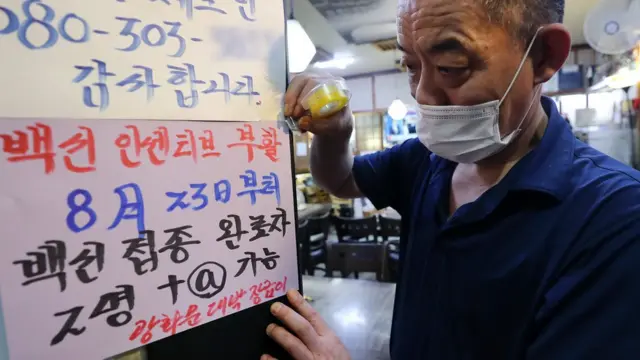 080-303-
감사합니다.
백신 인센티브 부활
8月 23日 부터
백신 접종 완료자
2명 + @ 가능
광화문 대박 장곱이